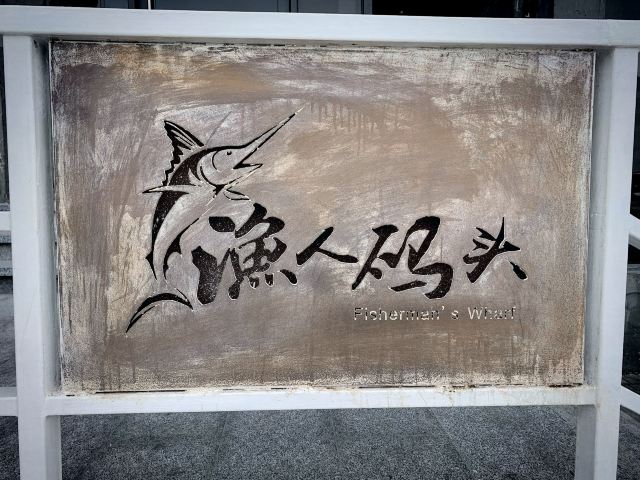 渔人码头
Fisherman's Wharf